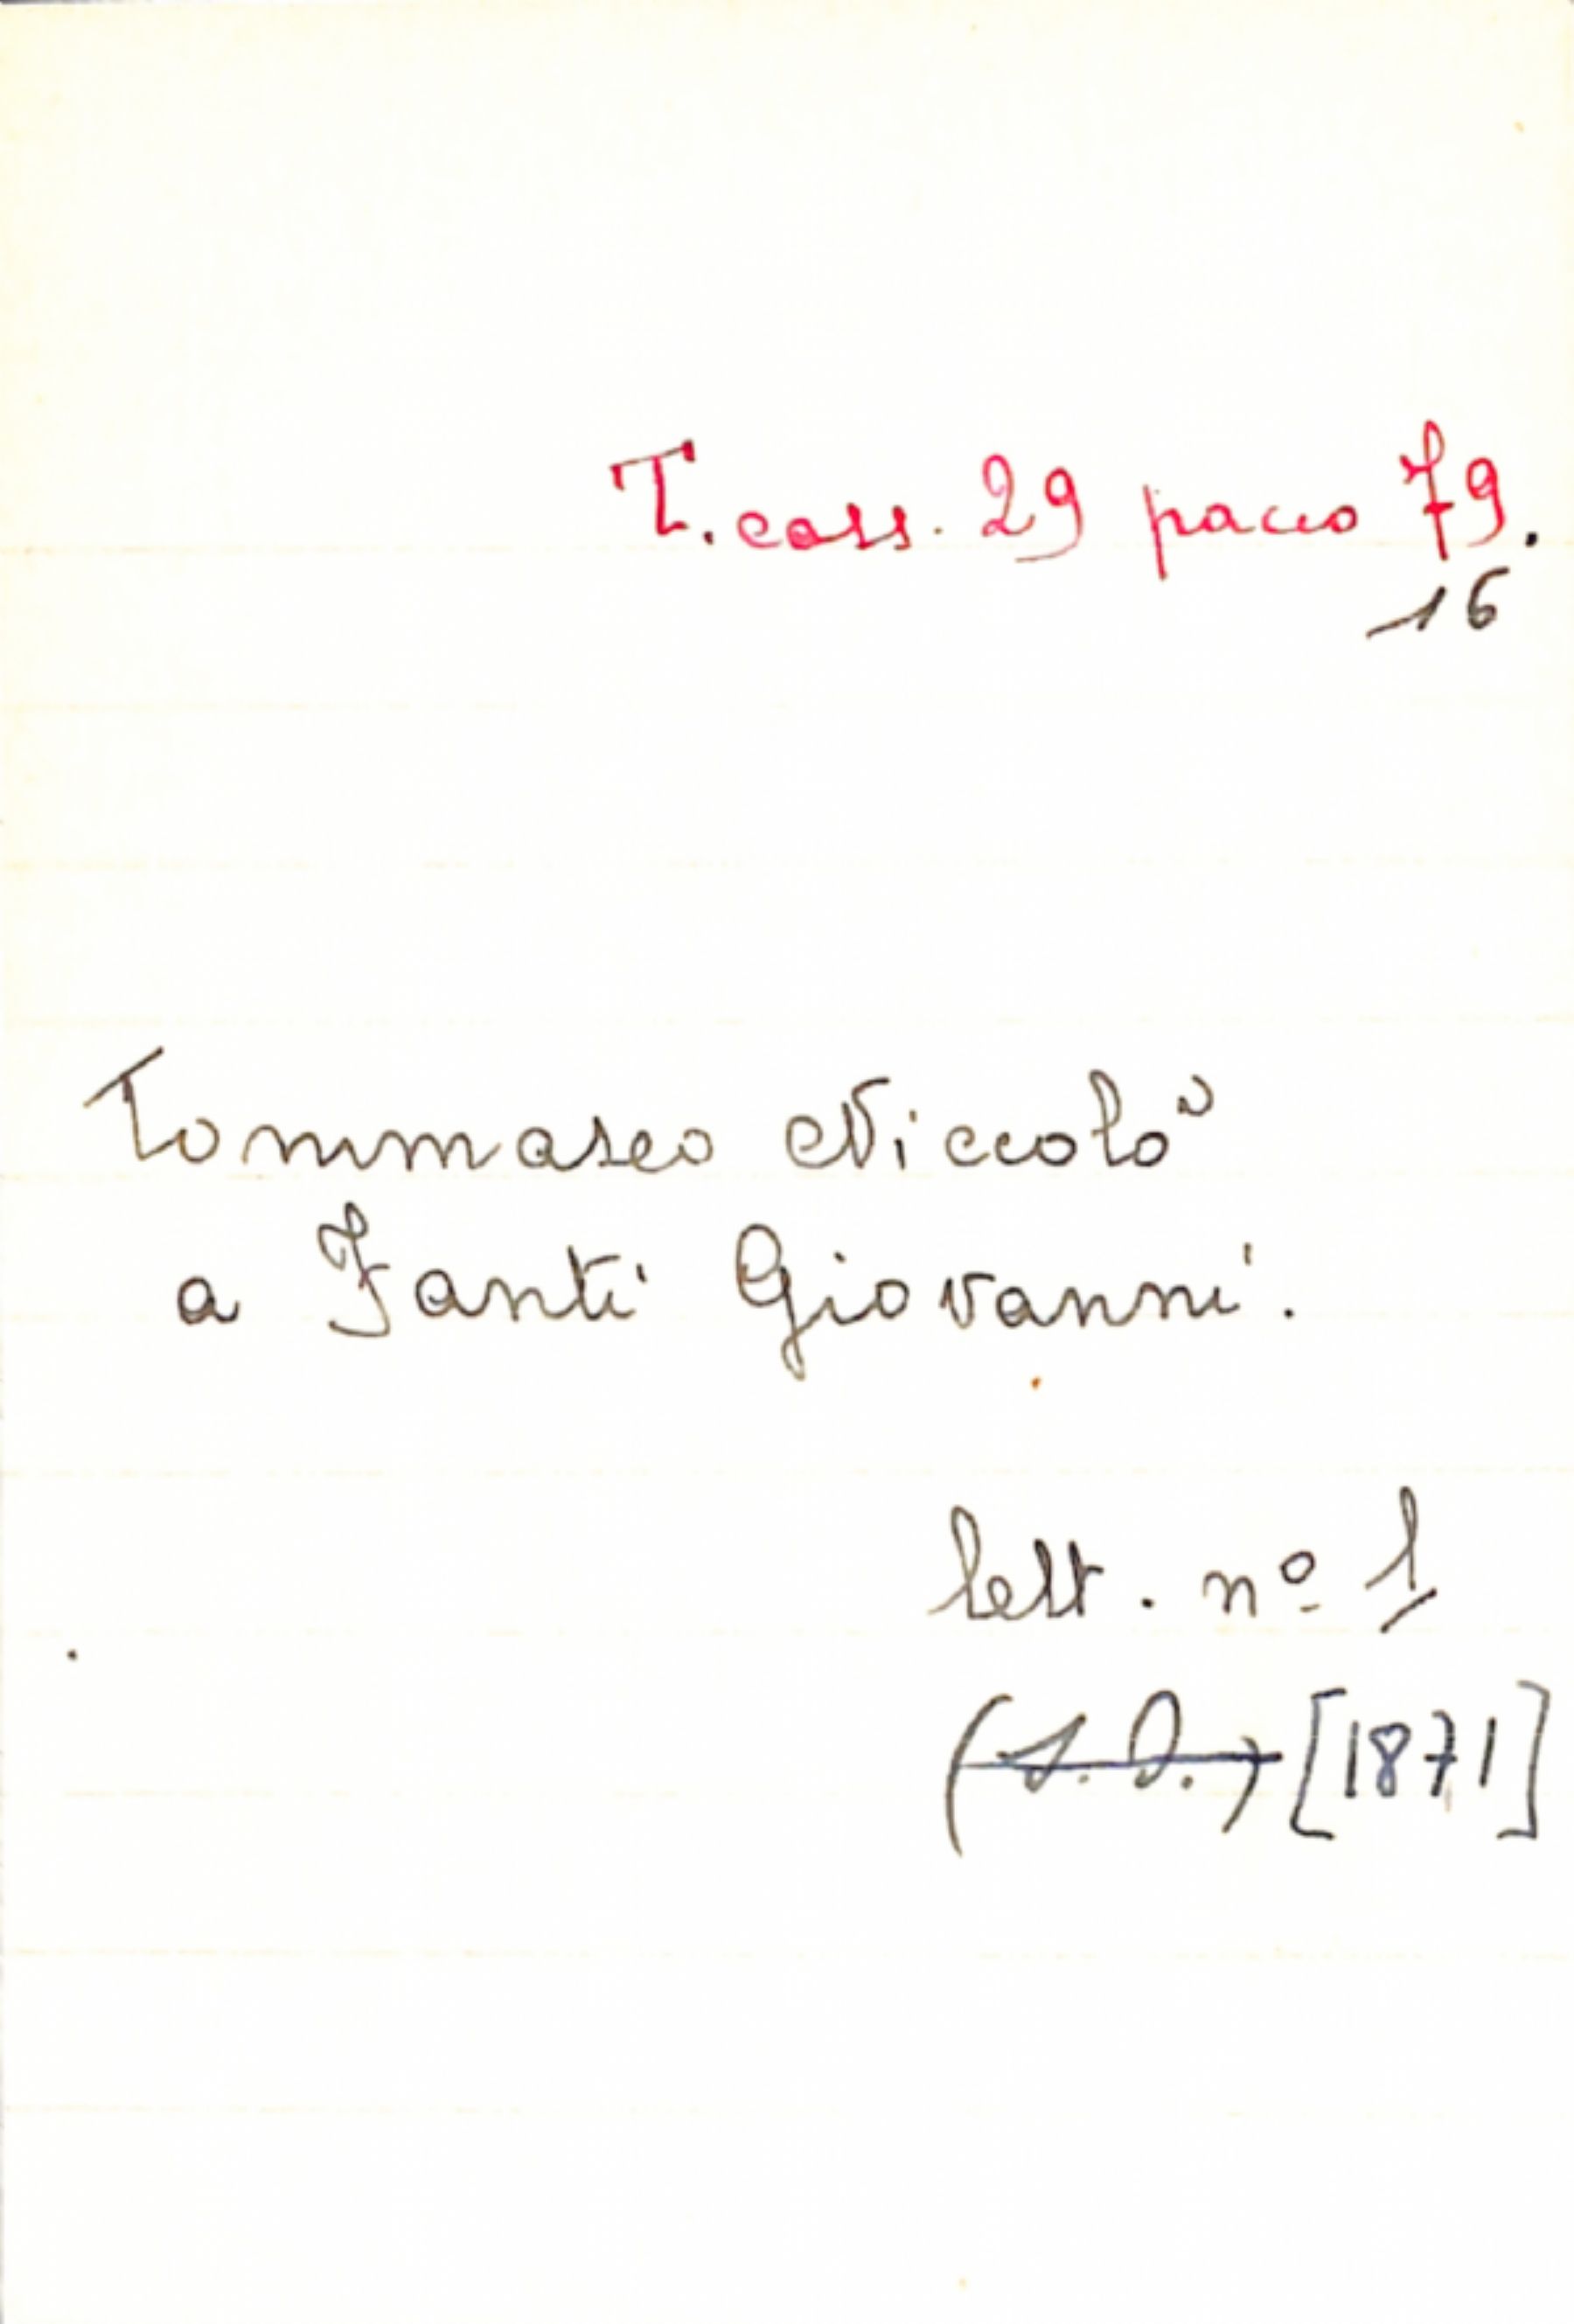 T. cass. 29 pacco 79.
16
Tommaseo Niccolò
a Fanti Giovanni.
lett. nº 1
(s. D.) [1871]